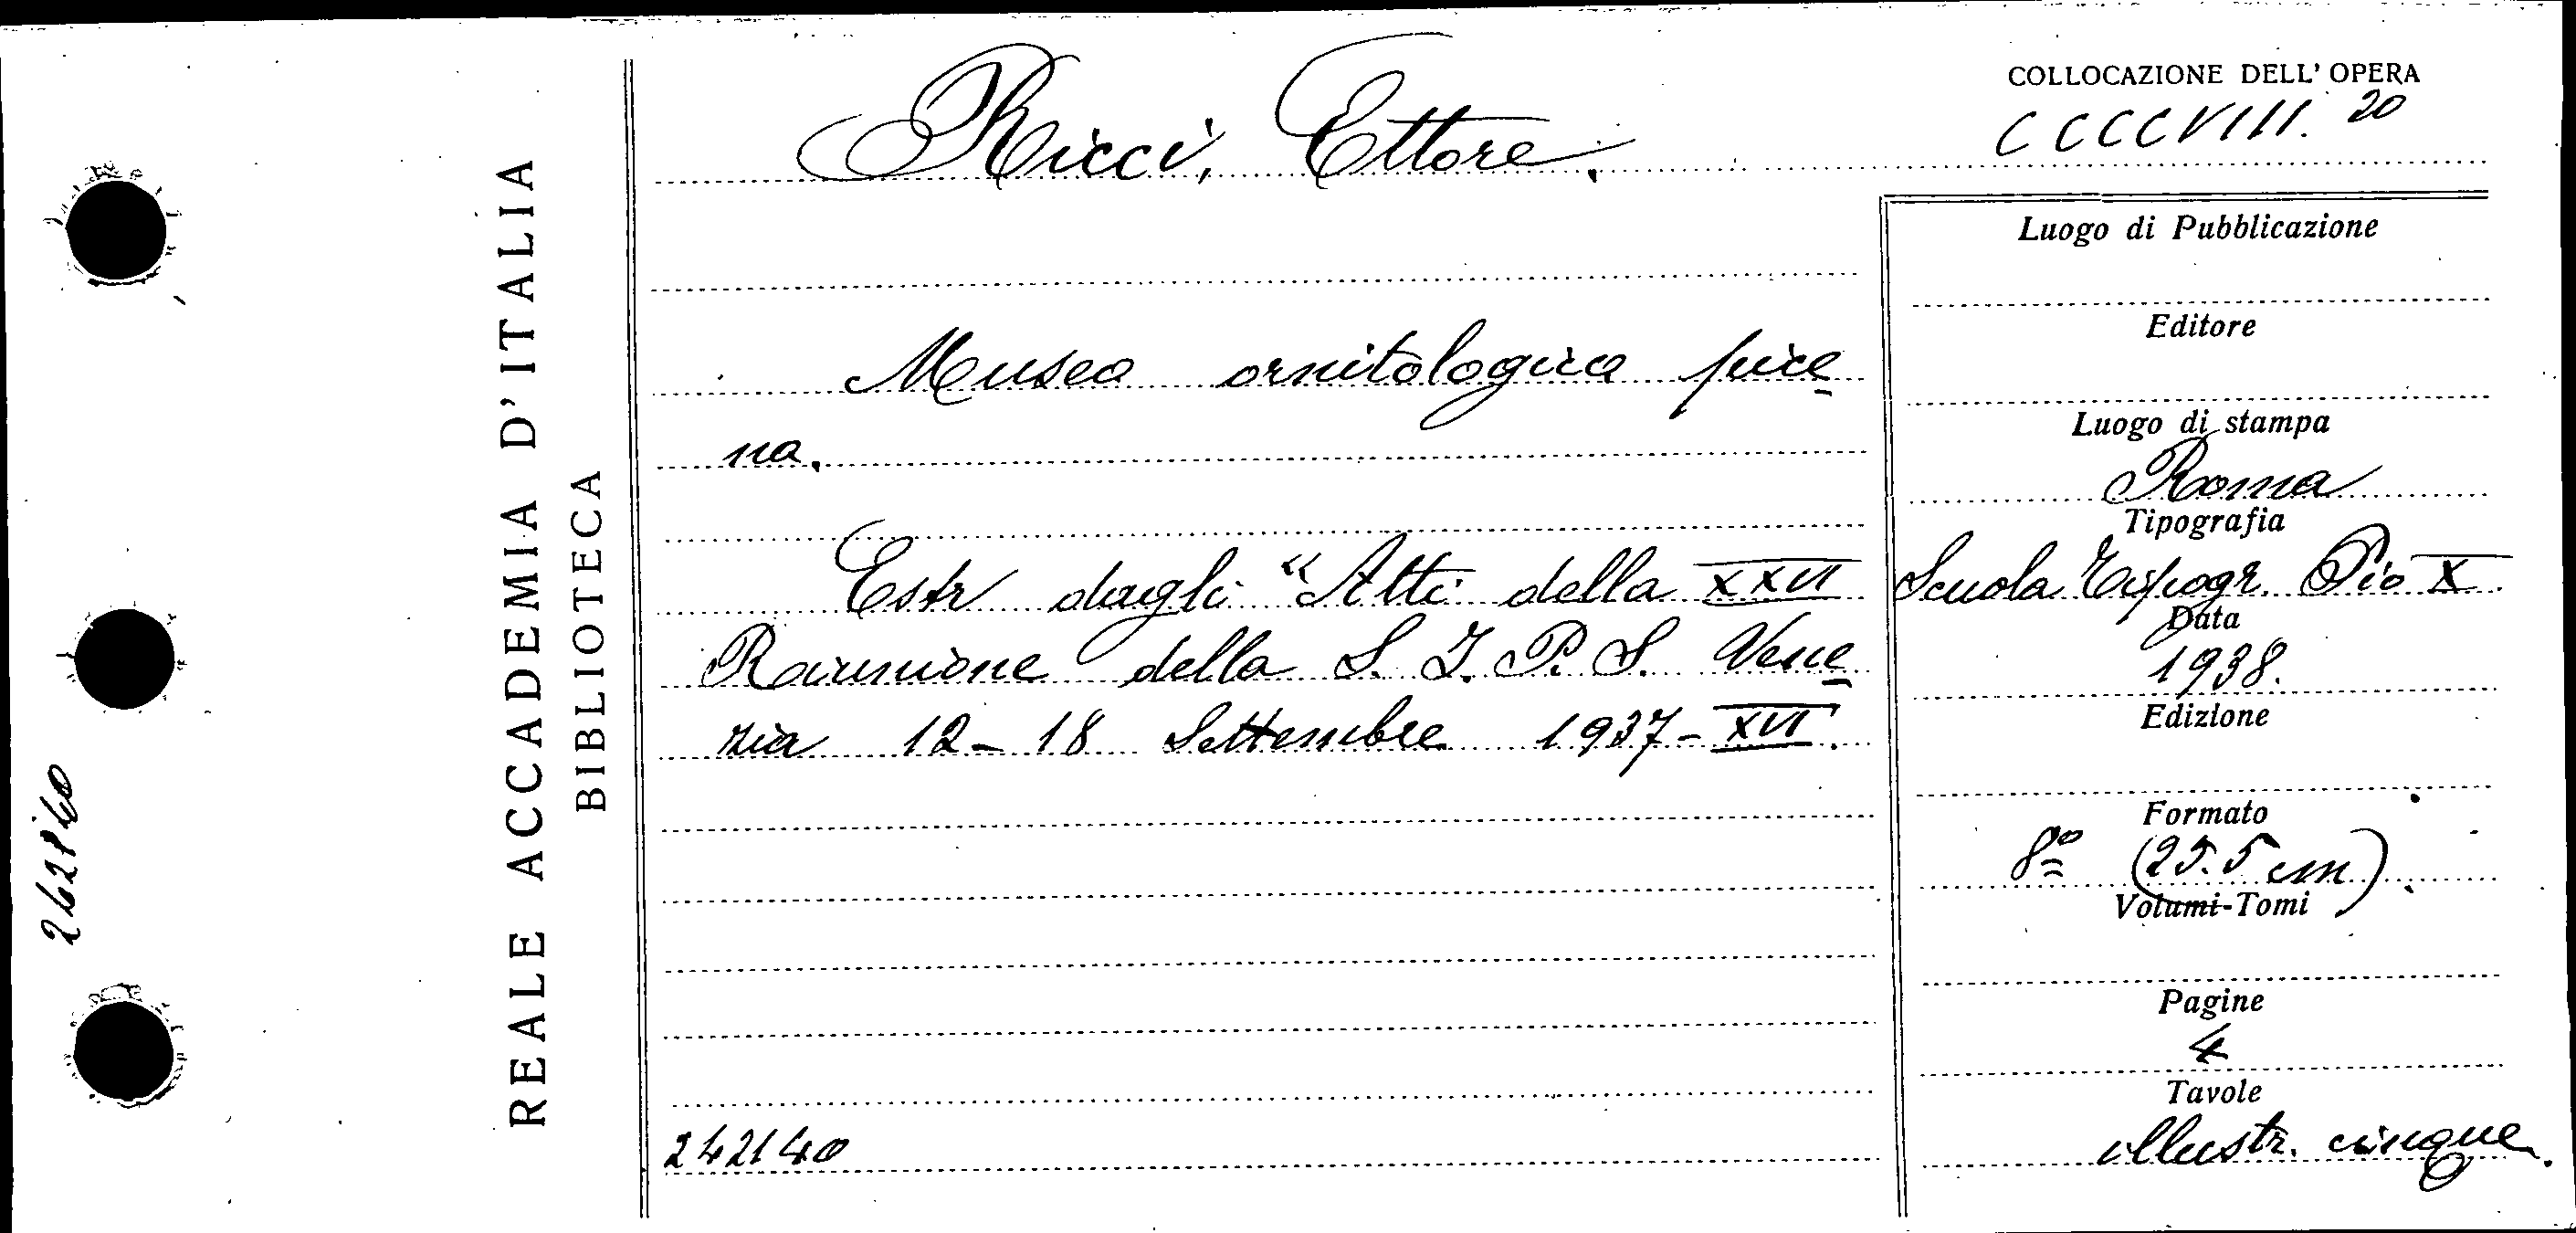 COLLOCAZIONE DELL' OPERA
CCCCVIII. 20
Ricci, Ettore.
Museo ornitologico pice
na.
Estr dagli "Atti della XXVI
Raiunione della S. I. P. S. Vene
zia 12-18 Settembre 1937-XVI.
242140
Luogo di Pubblicazione
Editore
Luogo di stampa
Roma
Tipografia
Scuola Tipogr. Pio X.
Data
1938.
Edizione
Formato
8º (25.5 cm).
Volumi-Tomi
Pagine
4
Tavole
illustr. cinque.
REALE ACCADEMIA D'ITALIA
BIBLIOTECA